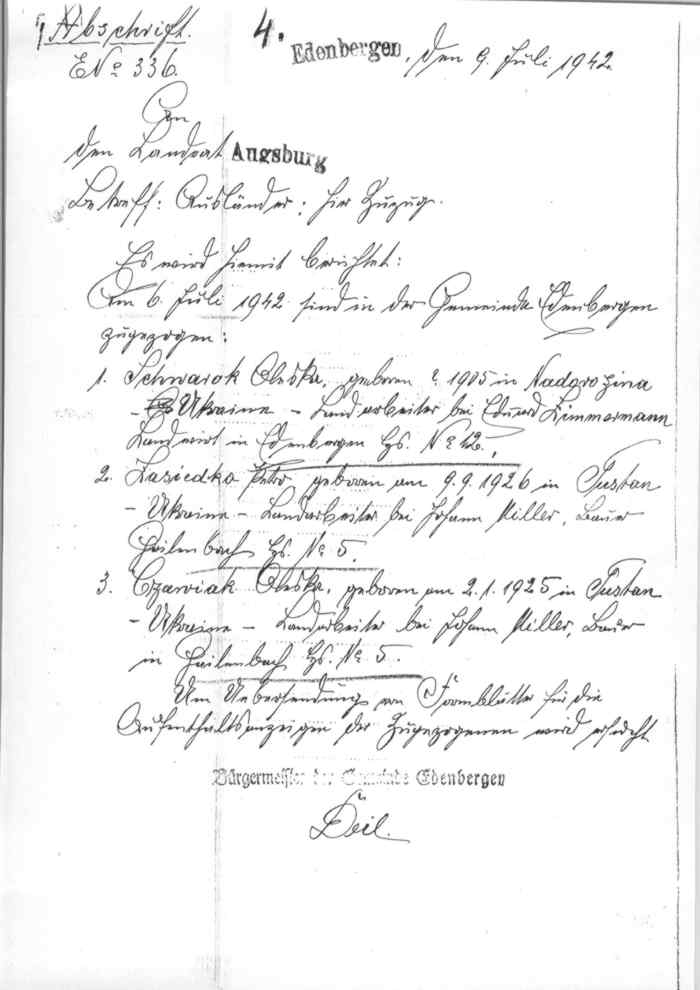 Abschrift.
4.
Edenbergen, den 9. Juli 1942.
E No 336.
An
den Landrat Augsburg
Betreff: Ausländer; hier Zuzug.
Es wird hiemit berichtet:
Am 6. Juli 1942 sind in der Gemeinde Edenbergen
zugezogen:
1. Schwarok Oleska, geboren ?. 1905 in Nadorozina
- Ukraine - Landarbeiter bei Eduard Zimmermann
Landwirt in Edenbergen Hs. No 12.
2. Zasiedko Petro geboren am 9.9.1926 in Tustan
- Ukraine - Landarbeiter bei Johann Miller, Bauer
Hailenbach Hs. No 5.
3. Czawiak Oleska, geboren am 2.1.1925 in Tustan
- Ukraine - Landarbeiter bei Johann Miller, Bauer
in Hailenbach, Hs. No 5.
Um Uebersendung von Formblätter für die
Aufenthaltsanzeigen der Zugezogenen wird ersucht.
Bürgermeister der Gemeinde Edenbergen